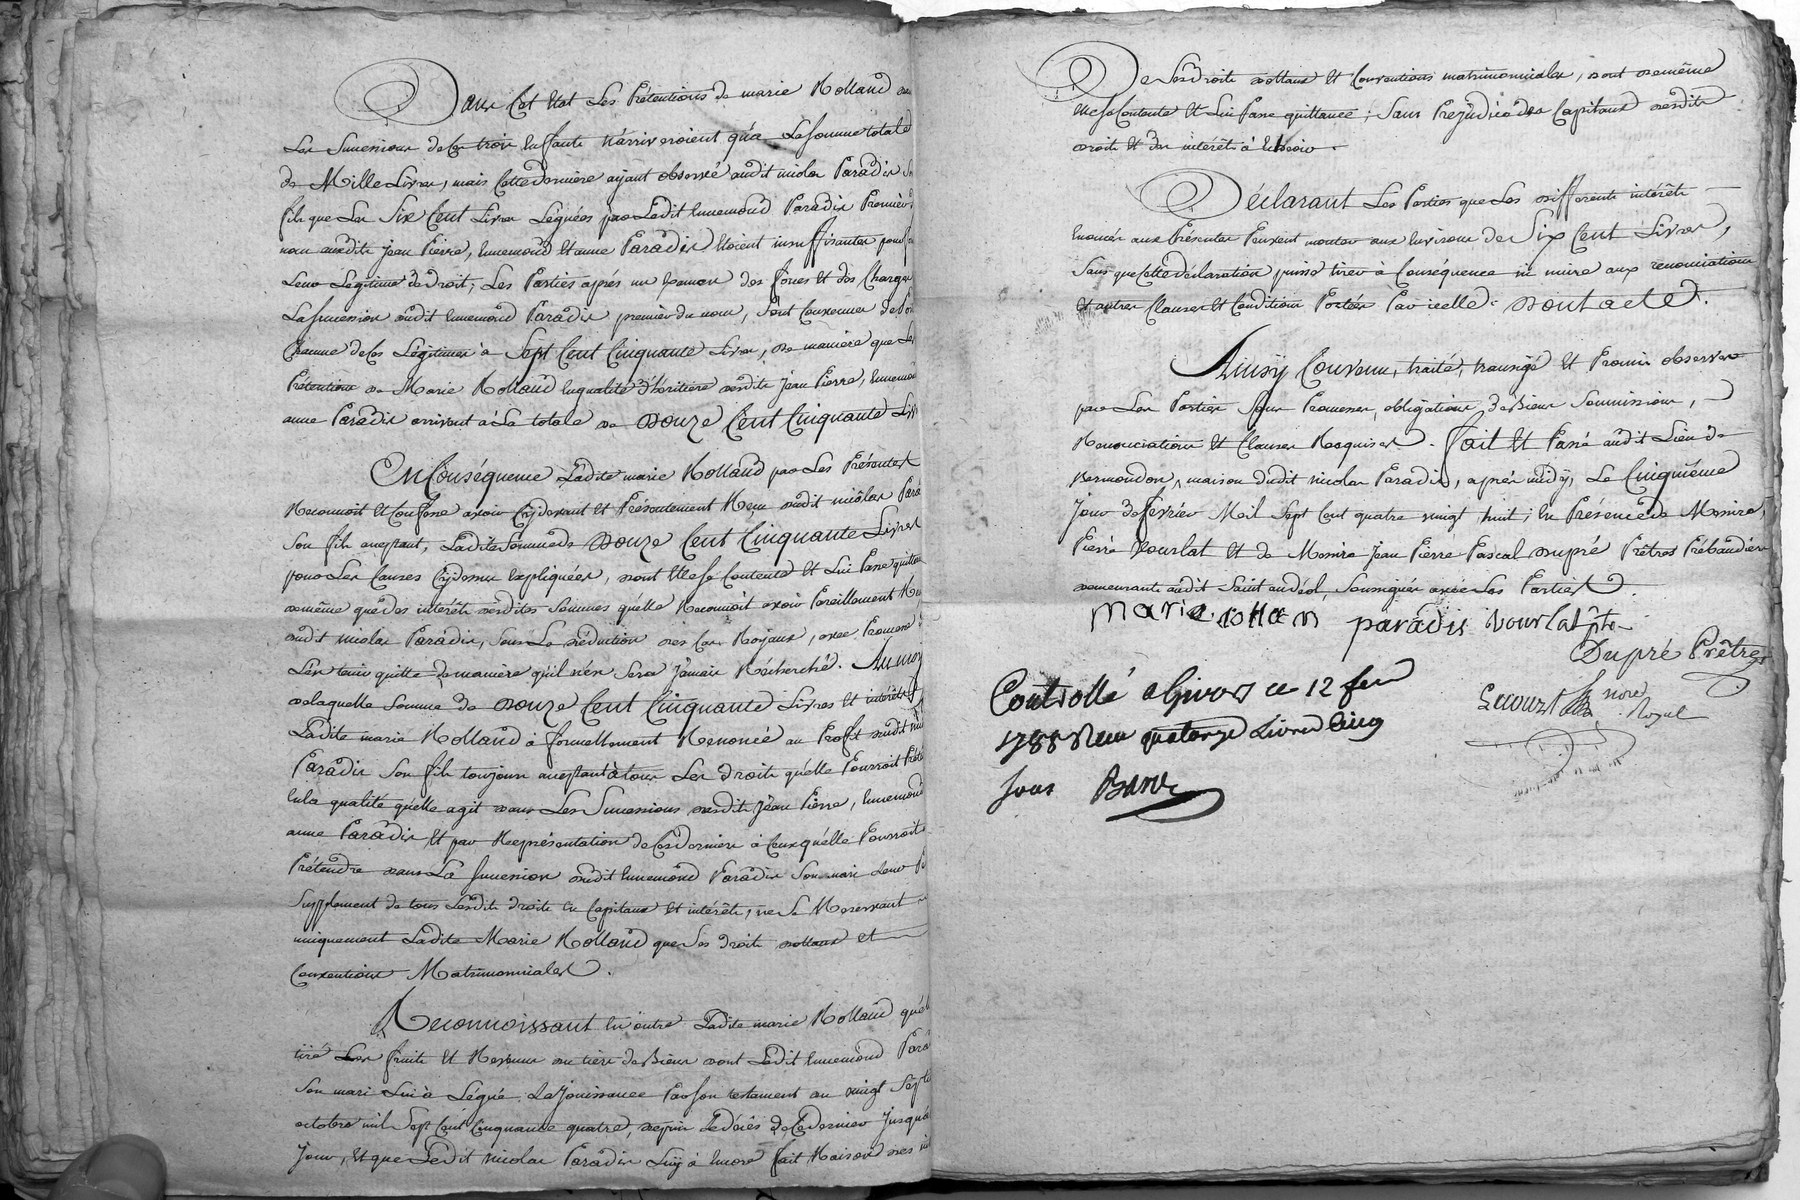 Dans Cet Etat Les Prétentions de marie Rolland
Les Successions de Ces trois Enfants n'arriveroient qu'a La somme totale
de Mille Livres, mais Cette derniere ayant observé audit nicolas Paradis
fils que Les Six Cent Livres Léguées par Ledit Ennemond Paradis Premier
nom auxdits Jean Pierre, Ennemond Et anne Paradis Etoient insuffisantes pour
Leur Légitime de droit; Les Parties après un Examen des forces Et des Charges
La Succession dudit Ennemond Paradis premier du nom, sont Convenues de
Chacune de Ces Légitimes à Sept Cent Cinquante Livres, de maniere que Les
Prétentions de Marie Rolland En qualité d'héritiere desdits Jean Pierre, Ennemond
anne Paradis arrivent à La totale de Douze Cent Cinquante Liv
En Conséquence Ladite marie Rolland par Les Présentes
Reconnoit Et Confesse avoir Cydevant Et Présentement Reçu dudit nicolas Para
Son fils acceptant, Ladite Somme de Douze Cent Cinquante Livres
pour Les Causes Cydessus Expliquées, dont Elle se Contente Et Lui Passe quittan
de même que des intérêts desdites Sommes qu'elle Reconnoit avoir Pareillement
dudit nicolas Paradis, Sous La déduction des Cas Royaux, avec Promesse
L'en tenir quitte de maniere qu'il n'en Sera Jamais Recherché. Au moy
de laquelle Somme de Douze Cent Cinquante Livres Et intérêts
Ladite marie Rolland à formellement Renoncé au Profit dudit
Paradis Son fils toujours acceptant à tous Les droits qu'elle Pourroit
En la qualité qu'elle agit dans Les Successions desdits Jean Pierre, Ennemond
anne Paradis Et par Représentation de Ces derniers à Ceux qu'elle Pourroit
Prétendre dans La Succession dudit Ennemond Paradis Son mari Leur
Supplement de tous Lesdits droits En Capitaux Et intérêts, ne Se Réservant
uniquement Ladite Marie Rolland que Ses droits dottaux et
Conventions Matrimoniales.
Reconnoissant En outre Ladite marie Rolland
tiré Les fruits Et Revenus du tiers des Biens dont Ledit Ennemond Para
Son mari Lui à Légué La Jouissance Par Son testament du vingt Sept
octobre mil Sept Cent Cinquante quatre, depuis Le décès de Ce dernier Jusqu'à
Jour, Et que Ledit nicolas Paradis Luy à Encore fait Raison des
De Ses droits dottaux Et Conventions matrimoniales, dont de même
Elle se Contente Et Lui Passe quittance; Sans Préjudice des Capitaux desdits
droits Et des intérêts à Echeoir.
Déclarant Les Parties que Les différents intérêts
Enoncés aux Présentes Peuvent monter aux Environs de Six Cent Livres,
Sans que Cette déclaration puisse tirer à Conséquence ni nuire aux renonciations
Et autres Clauses Et Conditions Portées Par icelles. Dont acte.
Ainsy Convenu, traité, transigé Et Promis observer
par Les Parties Sous Promesses, obligations de Biens Soumissions,
Renonciations Et Clauses Requises. Fait Et Passé audit Lieu de
Bermondon, maison dudit nicolas Paradis, après midy, Le Cinquième
Jour de février Mil Sept Cent quatre vingt huit; En Présence de Messire,
Pierre Vourlat Et de Messire Jean Pierre Pascal Dupré Prêtres Prébandiers
demeurants audit Saint andéol, Soussignés avec Les Parties.
Marie rollan paradis Vourlat ptre
Dupré Prêtre
Controllé a Givors ce 12 fev
1788 Reçu quatorze Livres Cinq
sous
Royal